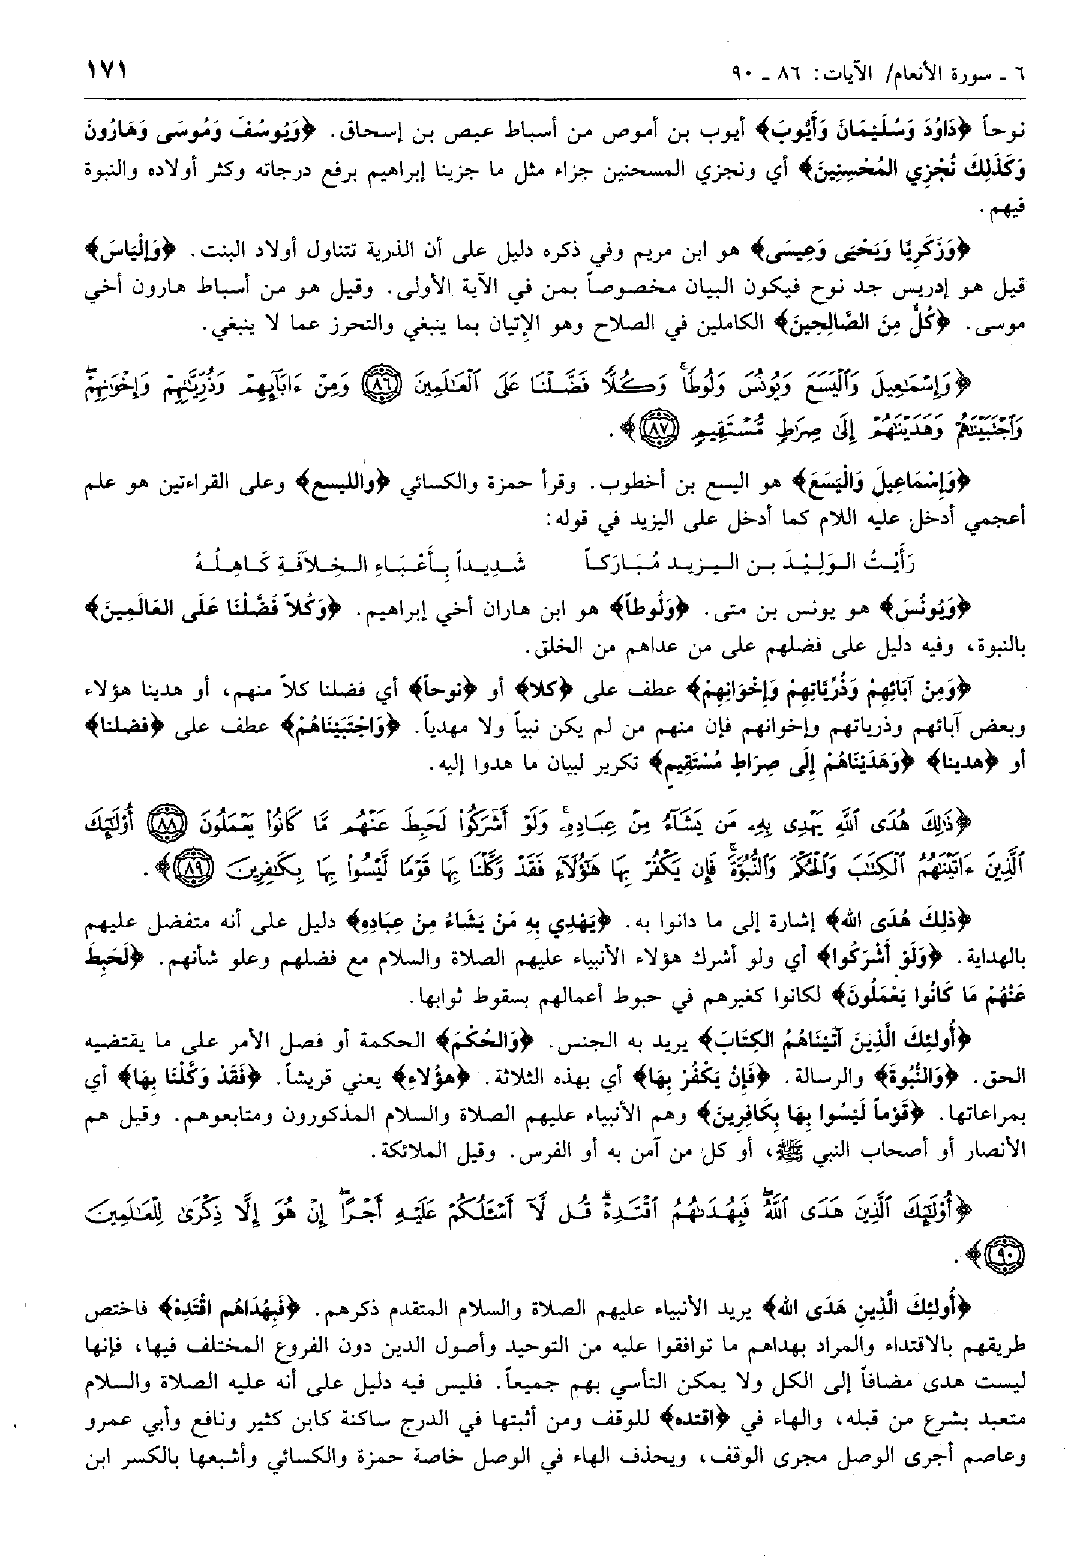 ٦ ـ سورة الأنعام/ الآيات: ٨٦ ـ ٩٠ ١٧١
نوحاً ﴿دَاوُدَ وَسُلَيْمَانَ وَأَيُّوبَ﴾ أيوب بن أموص من أسباط عيص بن إسحاق. ﴿وَيُوسُفَ وَمُوسَى وَهَارُونَ
وَكَذَلِكَ نُجْزِي المُحْسِنِينَ﴾ أي ونجزي المسحنين جزاء مثل ما جزينا إبراهيم برفع درجاته وكثر أولاده والنبوة
فيهم.
﴿وَزَكَرِيَّا وَيَحْيَى وَعِيسَى﴾ هو ابن مريم وفي ذكره دليل على أن الذرية تتناول أولاد البنت. ﴿وَإِلْيَاسَ﴾
قيل هو إدريس جد نوح فيكون البيان مخصوصاً بمن في الآية الأولى. وقيل هو من أسباط هارون أخي
موسى. ﴿كُلٌّ مِنَ الصَّالِحِينَ﴾ الكاملين في الصلاح وهو الإتيان بما ينبغي والتحرز عما لا ينبغي.
﴿وَإِسْمَٰعِيلَ وَٱلْيَسَعَ وَيُونُسَ وَلُوطًاۚ وَكُلًّا فَضَّلْنَا عَلَى ٱلْعَٰلَمِينَ ٨٦ وَمِنْ ءَابَآئِهِمْ وَذُرِّيَّٰتِهِمْ وَإِخْوَٰنِهِمْۖ
وَٱجْتَبَيْنَٰهُمْ وَهَدَيْنَٰهُمْ إِلَىٰ صِرَٰطٍ مُّسْتَقِيمٍ ٨٧﴾.
﴿وَإِسْمَاعِيلَ وَالْيَسَعَ﴾ هو اليسع بن أخطوب. وقرأ حمزة والكسائي ﴿والليسع﴾ وعلى القراءتين هو علم
أعجمي أدخل عليه اللام كما أدخل على اليزيد في قوله:
رَأَيْتُ الوَلِيْدَ بنَ اليزيد مُبَارَكاً شَدِيداً بِأَعْبَاءِ الخِلاَفَةِ كَاهِلُهُ
﴿وَيُونُسَ﴾ هو يونس بن متى. ﴿وَلُوطاً﴾ هو ابن هاران أخي إبراهيم. ﴿وَكُلاًّ فَضَّلْنَا عَلَى العَالَمِينَ﴾
بالنبوة، وفيه دليل على فضلهم على من عداهم من الخلق.
﴿وَمِنْ آبَائِهِمْ وَذُرِّيَّاتِهِمْ وَإِخْوَانِهِمْ﴾ عطف على ﴿كلا﴾ أو ﴿نوحاً﴾ أي فضلنا كلاً منهم، أو هدينا هؤلاء
وبعض آبائهم وذرياتهم وإخوانهم فإن منهم من لم يكن نبياً ولا مهدياً. ﴿وَاجْتَبَيْنَاهُمْ﴾ عطف على ﴿فضلنا﴾
أو ﴿هدينا﴾ ﴿وَهَدَيْنَاهُمْ إِلَى صِرَاطٍ مُسْتَقِيمٍ﴾ تكرير لبيان ما هدوا إليه.
﴿ذَٰلِكَ هُدَى ٱللَّهِ يَهْدِى بِهِۦ مَن يَشَآءُ مِنْ عِبَادِهِۦۚ وَلَوْ أَشْرَكُوا۟ لَحَبِطَ عَنْهُم مَّا كَانُوا۟ يَعْمَلُونَ ٨٨ أُو۟لَٰٓئِكَ
ٱلَّذِينَ ءَاتَيْنَٰهُمُ ٱلْكِتَٰبَ وَٱلْحُكْمَ وَٱلنُّبُوَّةَۚ فَإِن يَكْفُرْ بِهَا هَٰٓؤُلَآءِ فَقَدْ وَكَّلْنَا بِهَا قَوْمًا لَّيْسُوا۟ بِهَا بِكَٰفِرِينَ ٨٩﴾.
﴿ذلِكَ هُدَى الله﴾ إشارة إلى ما دانوا به. ﴿يَهْدِي بِهِ مَنْ يَشَاءُ مِنْ عِبَادِهِ﴾ دليل على أنه متفضل عليهم
بالهداية. ﴿وَلَوْ أَشْرَكُوا﴾ أي ولو أشرك هؤلاء الأنبياء عليهم الصلاة والسلام مع فضلهم وعلو شأنهم. ﴿لَحَبِطَ
عَنْهُمْ مَا كَانُوا يَعْمَلُونَ﴾ لكانوا كغيرهم في حبوط أعمالهم بسقوط ثوابها.
﴿أُولئِكَ الَّذِينَ آتَيْنَاهُمُ الكِتَابَ﴾ يريد به الجنس. ﴿وَالحُكْمَ﴾ الحكمة أو فصل الأمر على ما يقتضيه
الحق. ﴿وَالنُّبُوةَ﴾ والرسالة. ﴿فَإِنْ يَكْفُرْ بِهَا﴾ أي بهذه الثلاثة. ﴿هؤُلاءِ﴾ يعني قريشاً. ﴿فَقَدْ وَكَّلْنَا بِهَا﴾ أي
بمراعاتها. ﴿قَوْماً لَيْسُوا بِهَا بِكَافِرِينَ﴾ وهم الأنبياء عليهم الصلاة والسلام المذكورون ومتابعوهم. وقيل هم
الأنصار أو أصحاب النبي ﷺ، أو كل من آمن به أو الفرس. وقيل الملائكة.
﴿أُو۟لَٰٓئِكَ ٱلَّذِينَ هَدَى ٱللَّهُۖ فَبِهُدَىٰهُمُ ٱقْتَدِهْۗ قُل لَّآ أَسْـَٔلُكُمْ عَلَيْهِ أَجْرًاۖ إِنْ هُوَ إِلَّا ذِكْرَىٰ لِلْعَٰلَمِينَ
٩٠﴾.
﴿أُولئِكَ الَّذِينِ هَدَى الله﴾ يريد الأنبياء عليهم الصلاة والسلام المتقدم ذكرهم. ﴿فَبِهُدَاهُم اقْتَدِهْ﴾ فاختص
طريقهم بالاقتداء والمراد بهداهم ما توافقوا عليه من التوحيد وأصول الدين دون الفروع المختلف فيها، فإنها
ليست هدى مضافاً إلى الكل ولا يمكن التأسي بهم جميعاً. فليس فيه دليل على أنه عليه الصلاة والسلام
متعبد بشرع من قبله، والهاء في ﴿اقتده﴾ للوقف ومن أثبتها في الدرج ساكنة كابن كثير ونافع وأبي عمرو
وعاصم أجرى الوصل مجرى الوقف، ويحذف الهاء في الوصل خاصة حمزة والكسائي وأشبعها بالكسر ابن